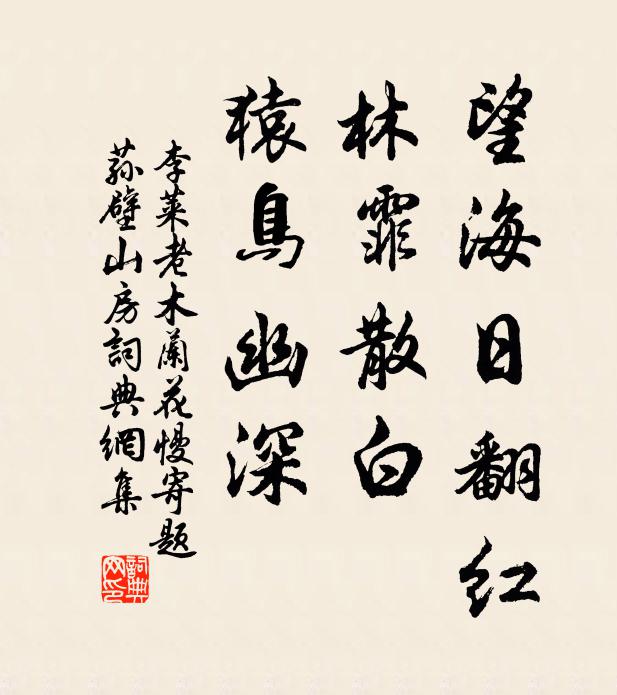 望海日翻紅
林霏散白
猿鳥幽深
李萊老木蘭花慢寄題
蓀壁山房詞典網集
詞典网印